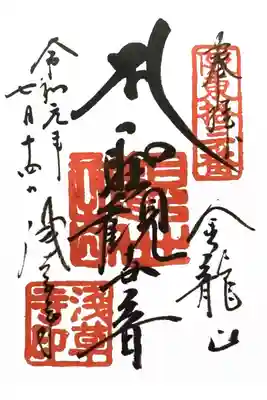 奉拝
坂東拾三番
金龍山
聖観世音
浅草寺
浅草寺印
令和元年
七月十四日